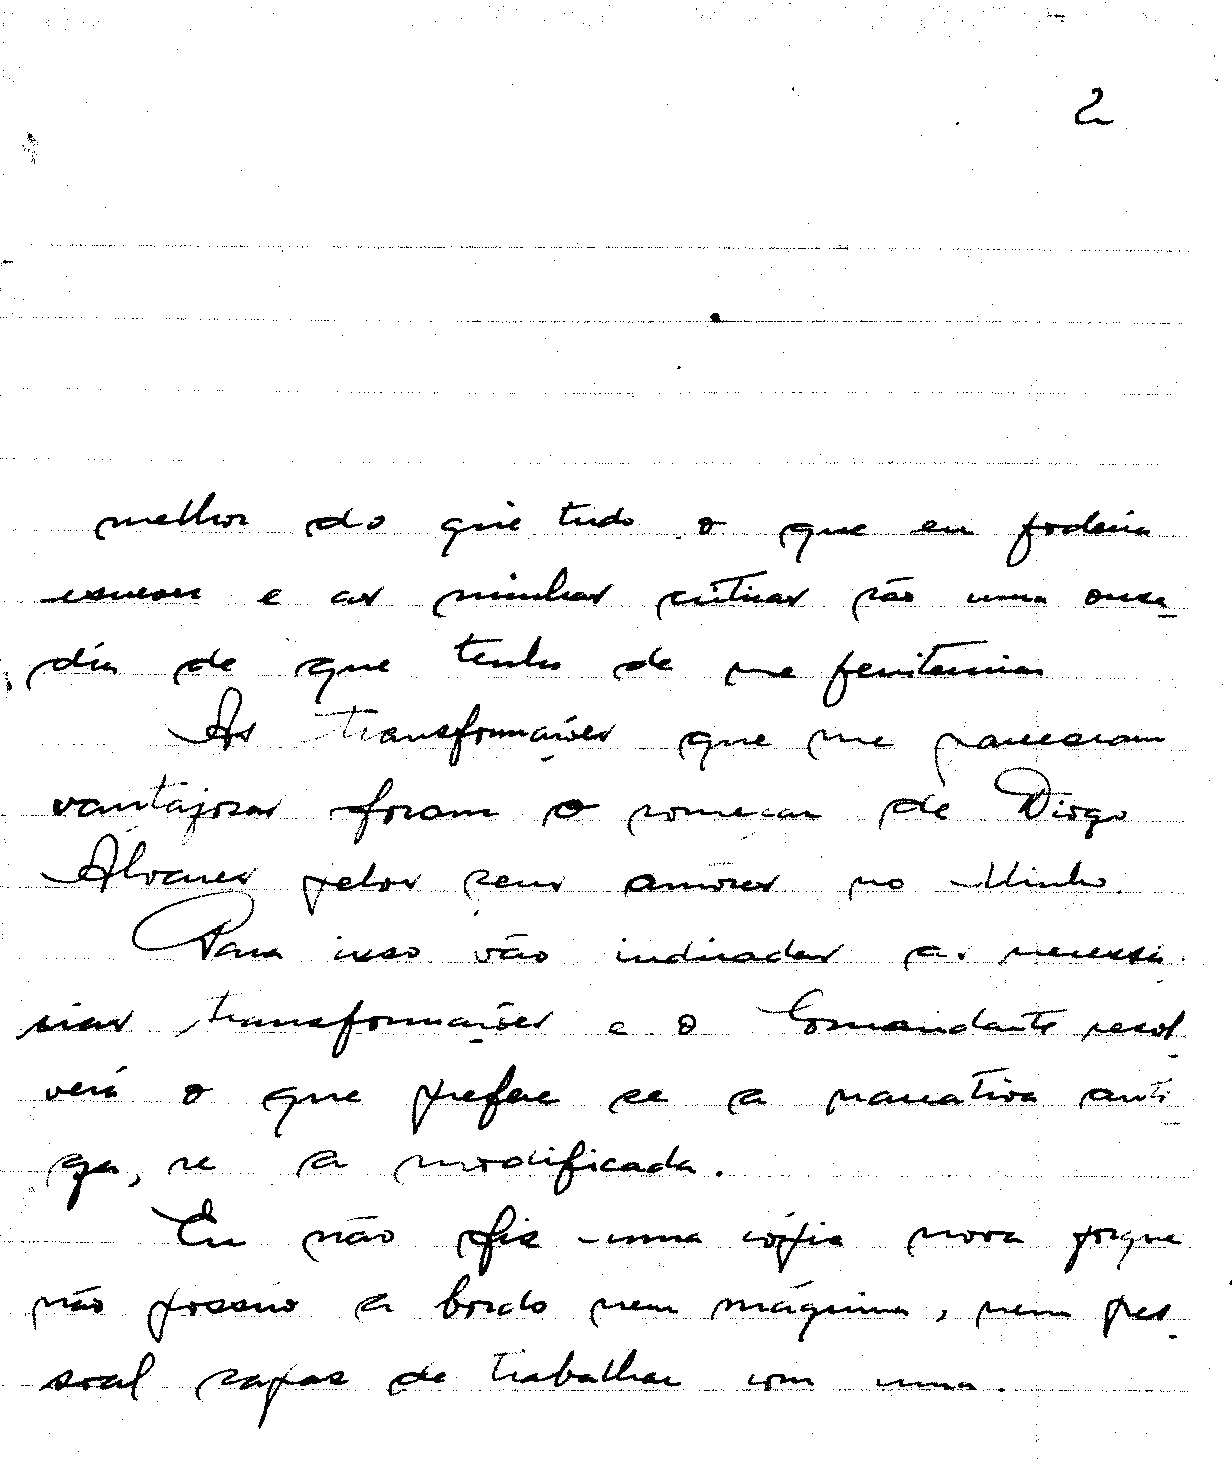 2
melhor do que tudo o que eu poderia
escrever e as minhas criticas são uma ousa-
dia de que tenho de me penitenciar
As transformações que me pareceram
vantajosas foram o começar de Diogo
Álvares pelos seus amôres no Minho.
Para isso vão indicadas as necessá-
rias transformações e o Comandante resol-
verá o que prefere se a narrativa anti-
ga, se a modificada.
Eu não fiz uma cópia nova porque
não possuo a bordo nem máquina, nem pes-
soal capaz de trabalhar com uma.